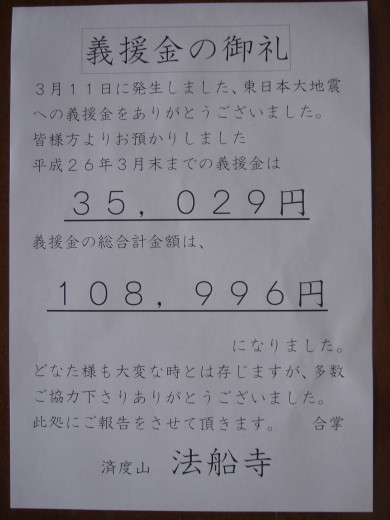 義援金の御礼
３月１１日に発生しました、東日本大地震
への義援金をありがとうございました。
皆様方よりお預かりしました
平成２６年３月末までの義援金は
３５，０２９円
義援金の総合計金額は、
１０８，９９６円
になりました。
どなた様も大変な時とは存じますが、多数
ご協力下さりありがとうございました。
此処にご報告をさせて頂きます。　合掌
済度山　法船寺